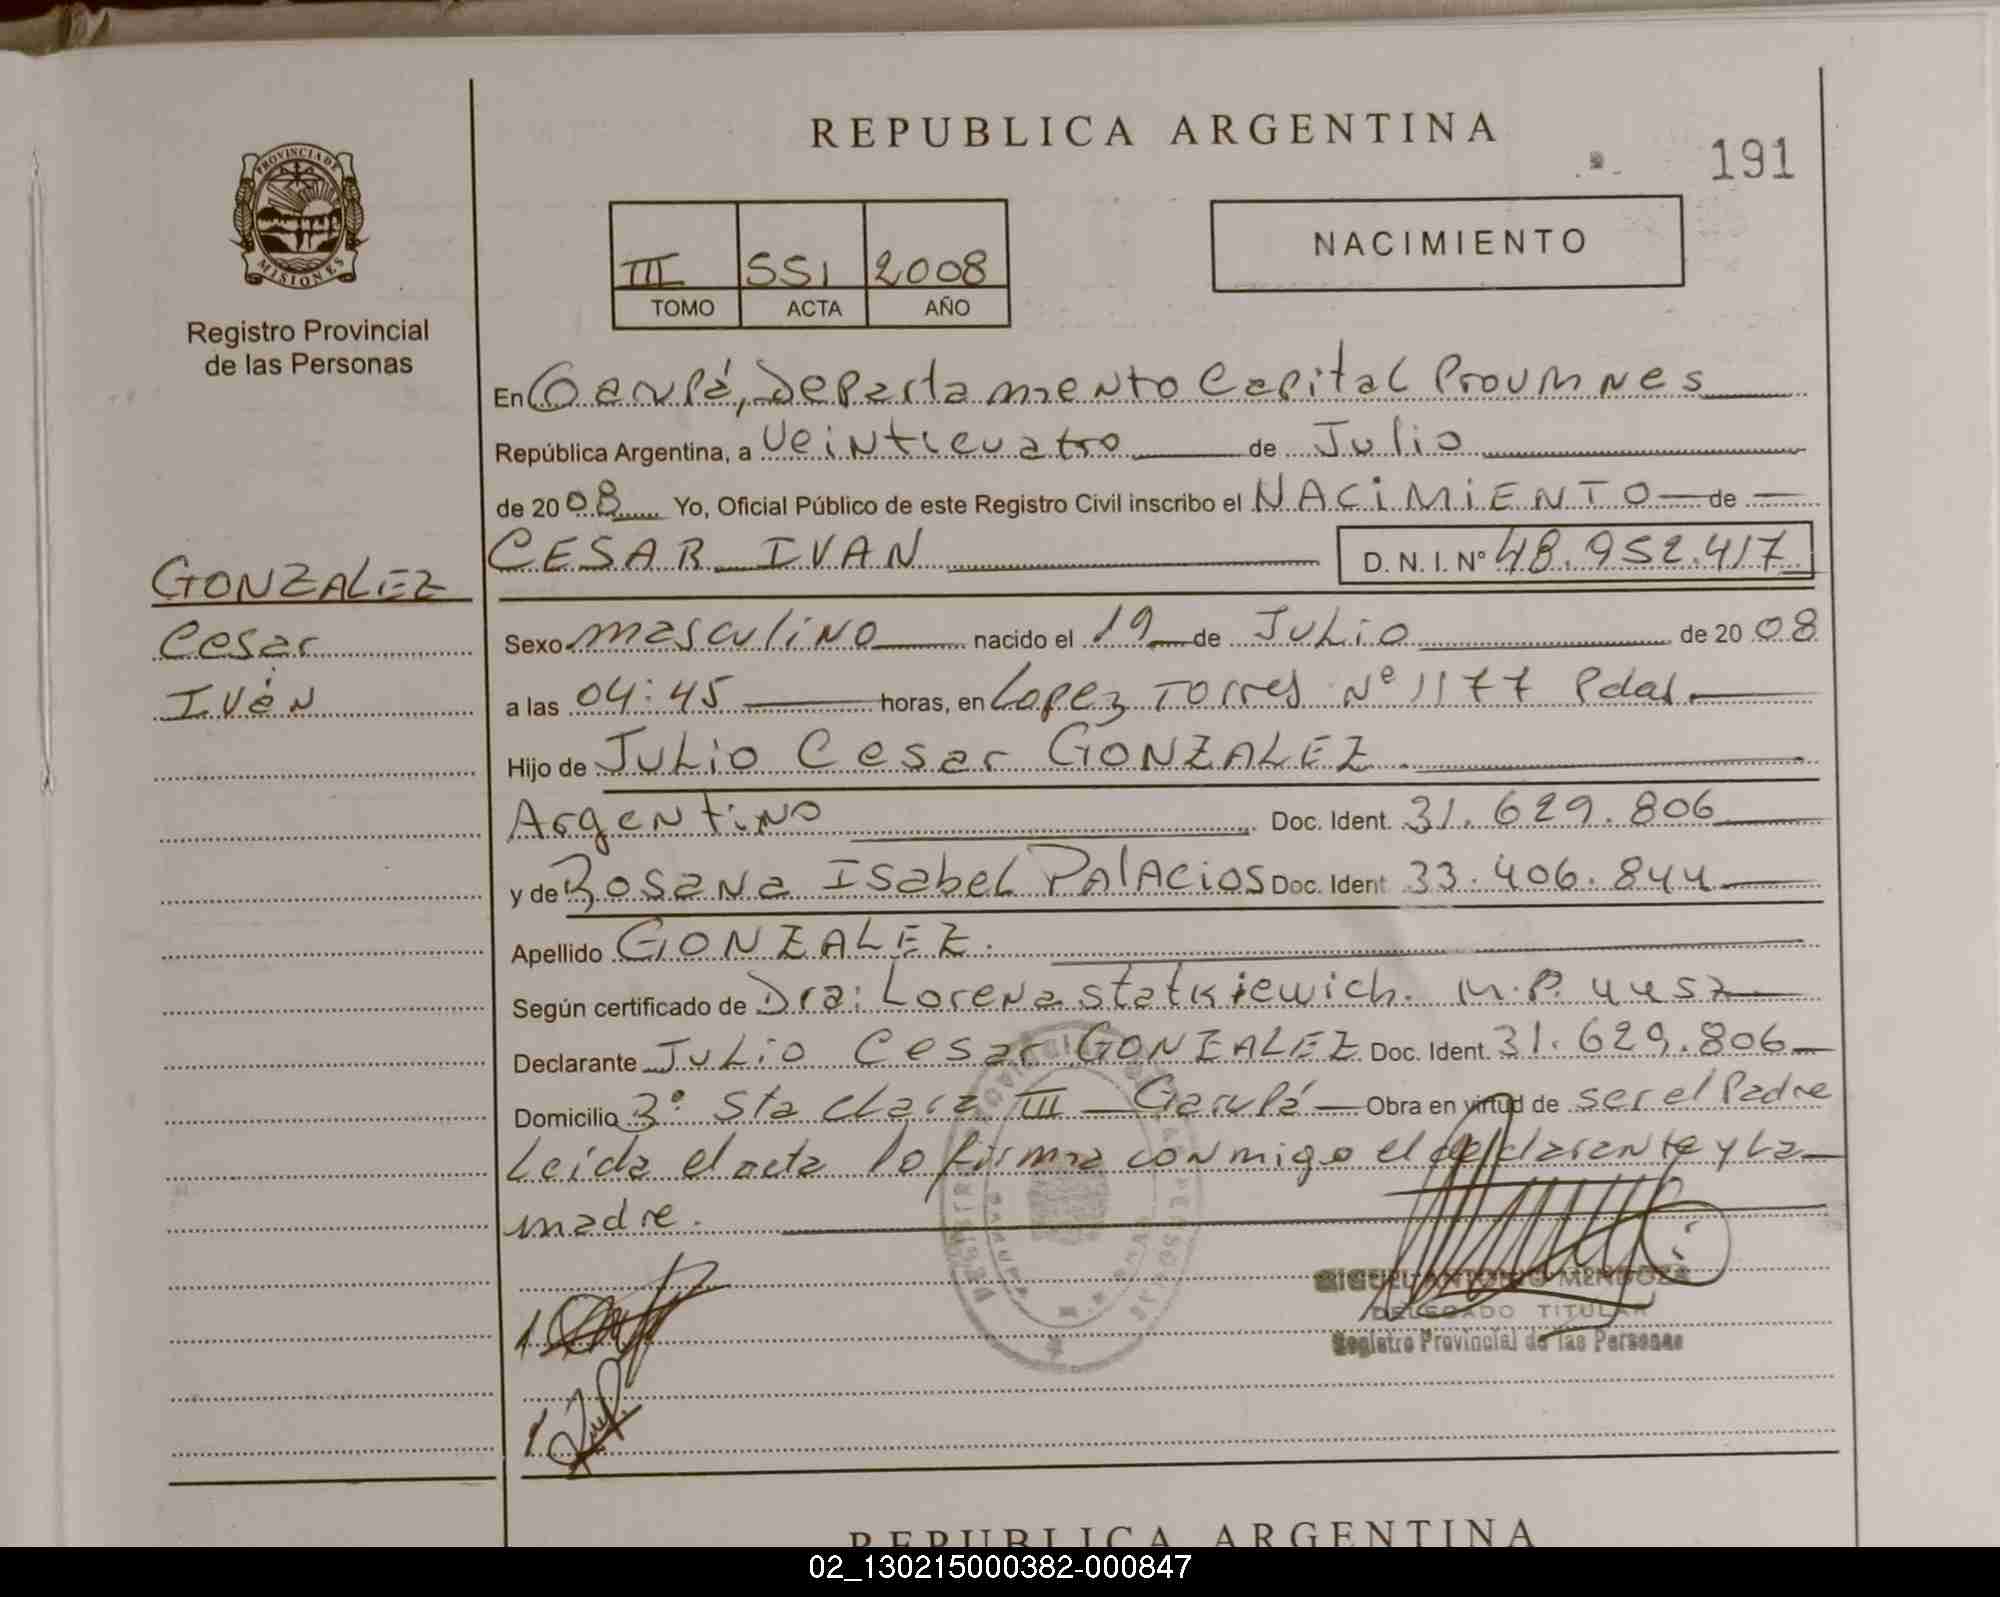 REPUBLICA ARGENTINA
191
PROVINCIA DE
MISIONES
Registro Provincial
de las Personas
III 551 2008
TOMO ACTA AÑO
NACIMIENTO
En Garupá, Departamento Capital Prov Mnes
República Argentina, a Veinticuatro de Julio
de 2008 Yo, Oficial Público de este Registro Civil inscribo el NACIMIENTO de
CESAR IVAN D. N. I. Nº 48.952.417
GONZALEZ
Cesar
Iván
Sexo masculino nacido el 19 de Julio de 2008
a las 04:45 horas, en Lopez Torres Nº 1177 Pdas
Hijo de Julio Cesar GONZALEZ
Argentino Doc. Ident. 31.629.806
y de Rosana Isabel PALACIOS Doc. Ident 33.406.844
Apellido GONZALEZ.
Según certificado de Dra: Lorena Statkiewich. M.P. 4457
Declarante Julio Cesar GONZALEZ Doc. Ident. 31.629.806
Domicilio 3º Sta Clara III - Garupá Obra en virtud de ser el Padre
Leída el acta lo firma conmigo el declarante y la
madre.
MIGUEL ANTONIO MENDOZA
DELEGADO TITULAR
Registro Provincial de las Personas
REPUBLICA ARGENTINA
02_130215000382-000847